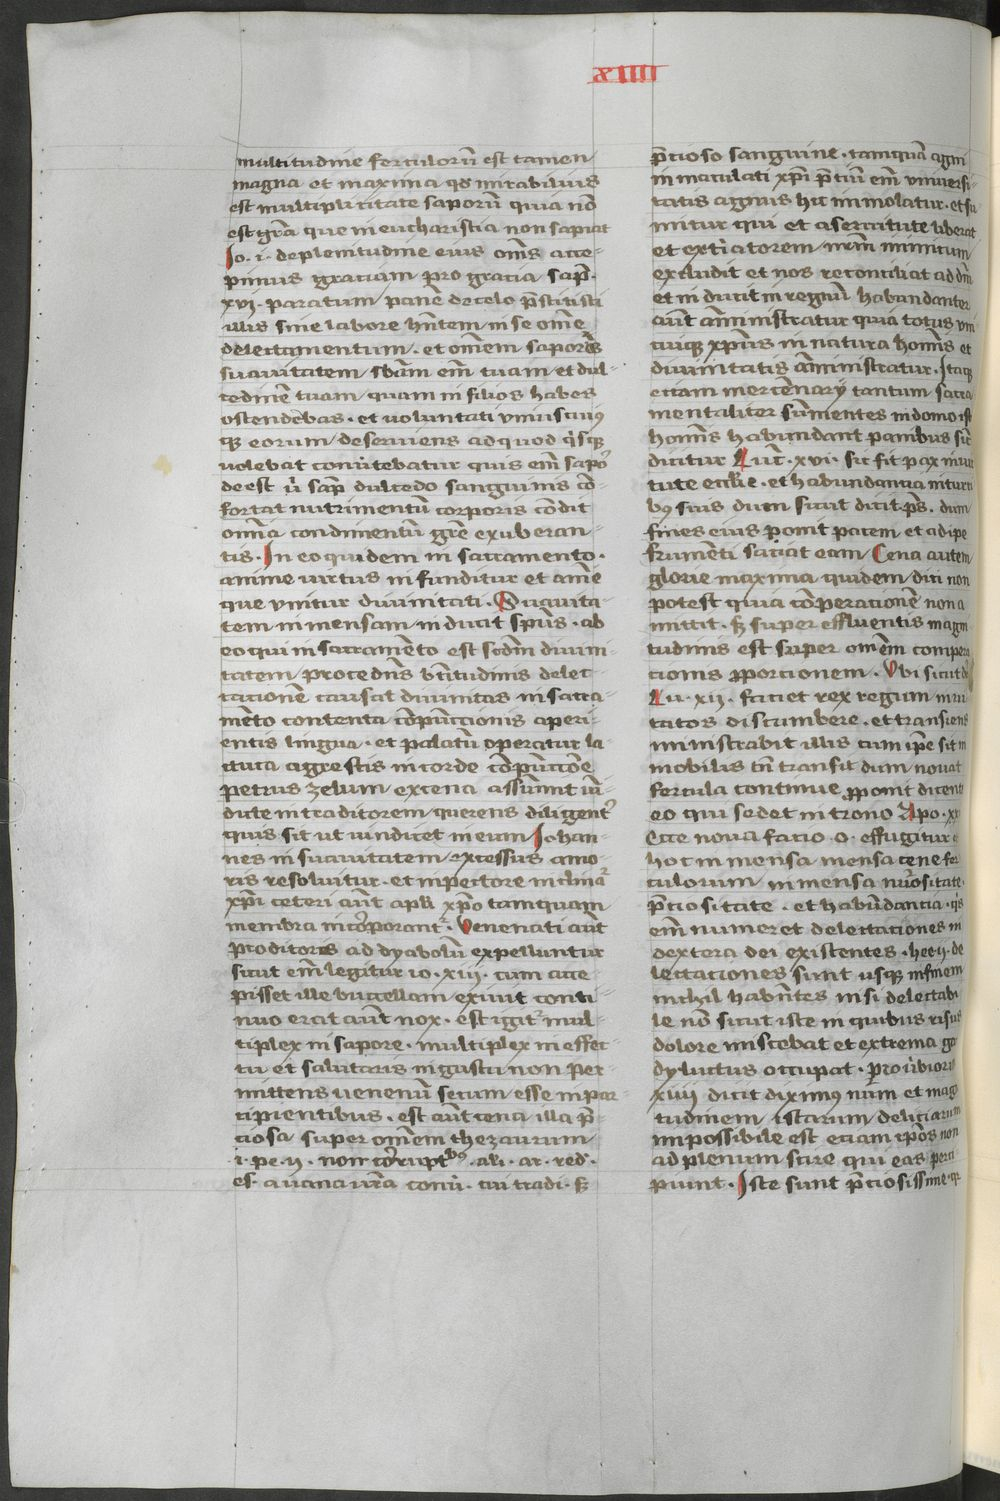 xiiii
multitudine ferculorũ est tamen
magna et maxima qđ mirabilius
est multiplicitate saporũ quia nõ
est gr̃a que in eucharistia non sapiat
Io. i. de plenitudine eius om̃s acce-
pimus graciam pro gracia sap̃.
xvi. paratum panẽ de celo p̃stitisti
illis sine labore hñtem in se om̃e
delectamentum. et om̃em saporis
suauitatem sb̃am em̃ tuam et dul-
cedinẽ tuam quam in filios habes
ostendebas. et uoluntati vniuscuiꝰ
qꝫ eorum deseruiens ad quod q̇sqꝫ
uolebat conũtebatur quis em̃ sapoꝛ̃
deest ů sap̃ dulcedo sanguinis cõ-
fortat nutrimentũ corporis cõdit
om̃ia condimentũ gr̃e exuberan-
tis. In eo quidem in sacramento.
anime uirtus infunditur et ami̇e
que vnitur diuinitati. Suauita-
tem in mensam inducit sp̃us. ab
eo qui in sacramẽto est scd̃m diuini-
tatem procedñs bt̃itudinis delec-
tacionẽ causat diuinitas in sacra-
mẽto contenta cõpũctionis aperi-
entis lingua. et palatũ operatur la-
ctuca agrestis in corde cõpũctõe
petrus zelum ex cena assum̃it iñ-
ducte in traditorem querens diligent᷑
quis sit ut uindicet in eum Iohan-
nes in suauitatem excessus amo-
ris resoluitur. et in pectore inclinat᷑
xp̃i ceteri aũt apl̃i xp̃o tamquam
membra incorporant᷑. Venenati aũt
proditores ad dyabolũ expelluntur
sicut em̃ legitur io. xiii. cum acce
pisset ille buccellam exiuit conti-
nuo erat aũt nox. est igit᷑ mul-
tiplex in sapore. multiplex in effec-
tu et salutaris in gustu non per-
mittens uenenũ secum esse in par-
cipientibus. est aũt cena illa p̃-
ciosa super om̃em thezaurum
i. pe. ii. non cor̃ruptibꝰ. au̇. ar. red.
es. a uana ur̃a conũ. cui tradi. sꝫ
p̃cioso sanguine. tamquã agni
inmaculati xp̃i p̃ciũ em̃ vniuersi-
tatis agnus hic immolatur. et su
mitur qui et a seruitute liberat
et extiatorem nr̃m inimicum
excludit et nos reconciliat ad dñi
et inducit in regnũ habundanter
aũt am̃inistratur quia totus vni
cuiqꝫ xp̃us in natura hom̃s et
diuinitatis am̃inistratur. Itaqꝫ
eciam mercẽnarij tantum sacra
mentaliter sum̃entes in domo ist̃
hom̃s habundant panibus sic̃
dicitur Luc̃. xvi. sic fit pax in uir
tute eccl̃ie. et habundancia in turri
bꝰ suis dum sicut dicit p̃s. dum
fines eius ponit pacem et adipe
frumẽti saciat eam Cena autem
glorie maxima quidem dici non
potest quia cõperacionẽ non a
mittit. sꝫ super effluentis magni
tudinis est super om̃em compera
cionis ꝓporcionem. Vbi sicut dr̃
Lu. xii. faciet rex regum inui
tatos discumbere. et transiens
ministrabit illis cum ip̃e sit in
mobilis tñ transit dum nouat
fercula continue ꝓponit dicenti
eo qui sedet in trono Apo. xxi
Ecce noua facio o. effugitur a
hoc in mensa mensa cene fer
culorum in mensa nũositate.
p̃ciositate. et habũdancia. qis
em̃ numeret delectaciones in
dextera dei existentes. hee ii. de
lectaciones sunt usqꝫ in finem
nichil habñtes nisi delectabi
le nõ sicut iste in quibus risus
dolore miscebat et extrema ga
dy luctus occupat. prouerbiorũ
xiiii dicit diximꝰ num̃ et mag
tudinem istarum deliciarum
impossibile est eciam ip̃os non
ad plenum scire qui eas perci
piunt. Iste sunt p̃ciosissime. q̃